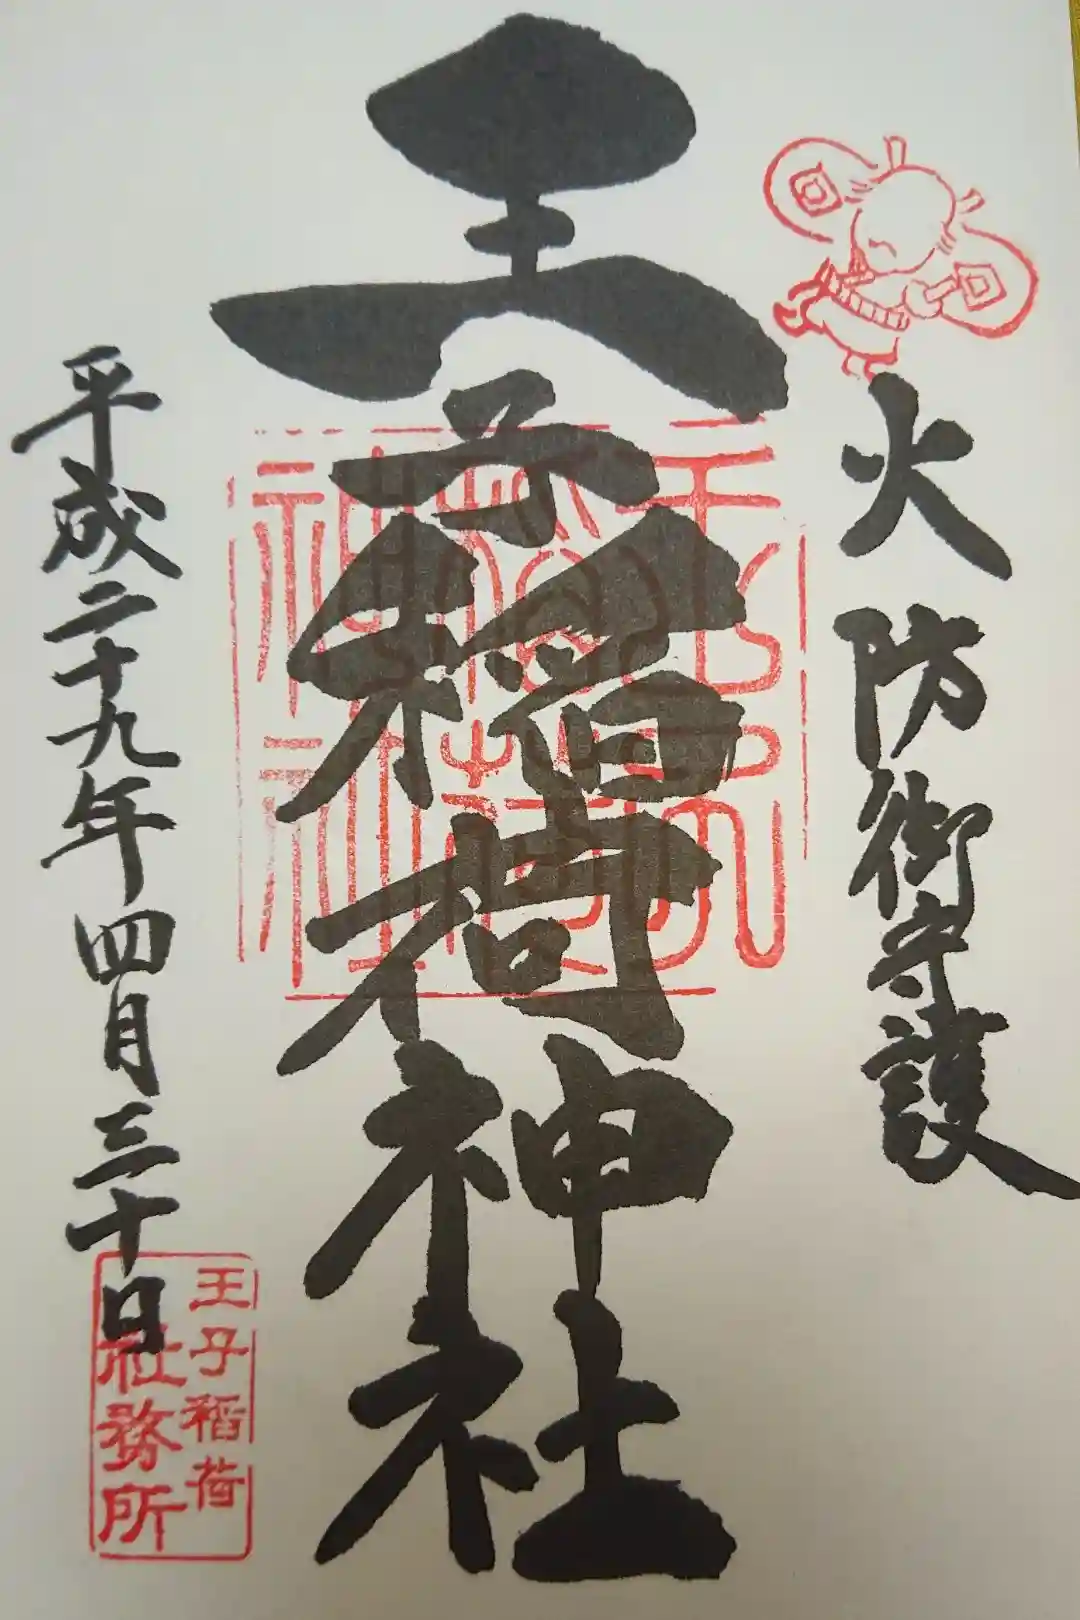 火防御守護
王子稲荷神社
王子稲荷神社
平成二十九年四月三十日
王子稲荷
社務所